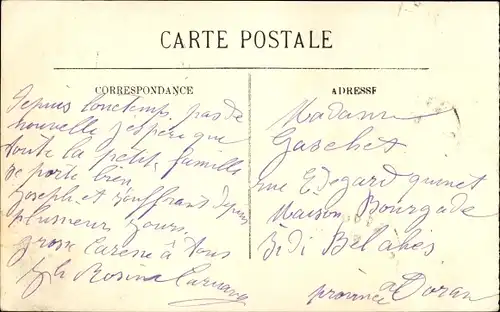 CARTE POSTALE
CORRESPONDANCE
Depuis lonctemp pas de
nouvelle j'espère que
toute la petite famille
se porte bien
Joseph et souffrant depuis
plusieurs jours
grosse Caresse à tous
Rosine
ADRESSE
Madame
Gaschet
rue Edegard quinet
Maison Bourgade
Sidi Belabès
province d'Oran